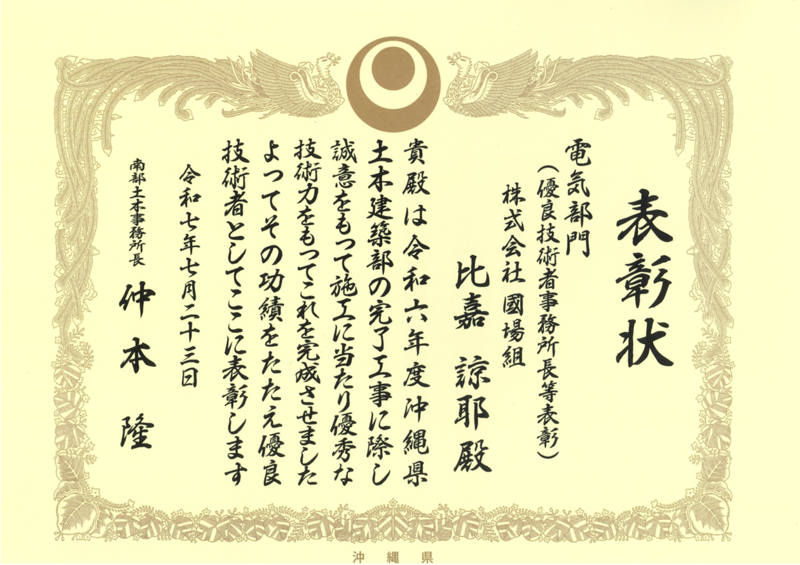 表彰状
電気部門
(優良技術者事務所長等表彰)
株式会社 國場組
比嘉 諒耶 殿
貴殿は令和六年度沖縄県
土木建築部の完了工事に際し
誠意をもって施工に当たり優秀な
技術力をもってこれを完成させました
よってその功績をたたえ優良
技術者としてここに表彰します
令和七年七月二十三日
南部土木事務所長 仲本 隆
沖縄県